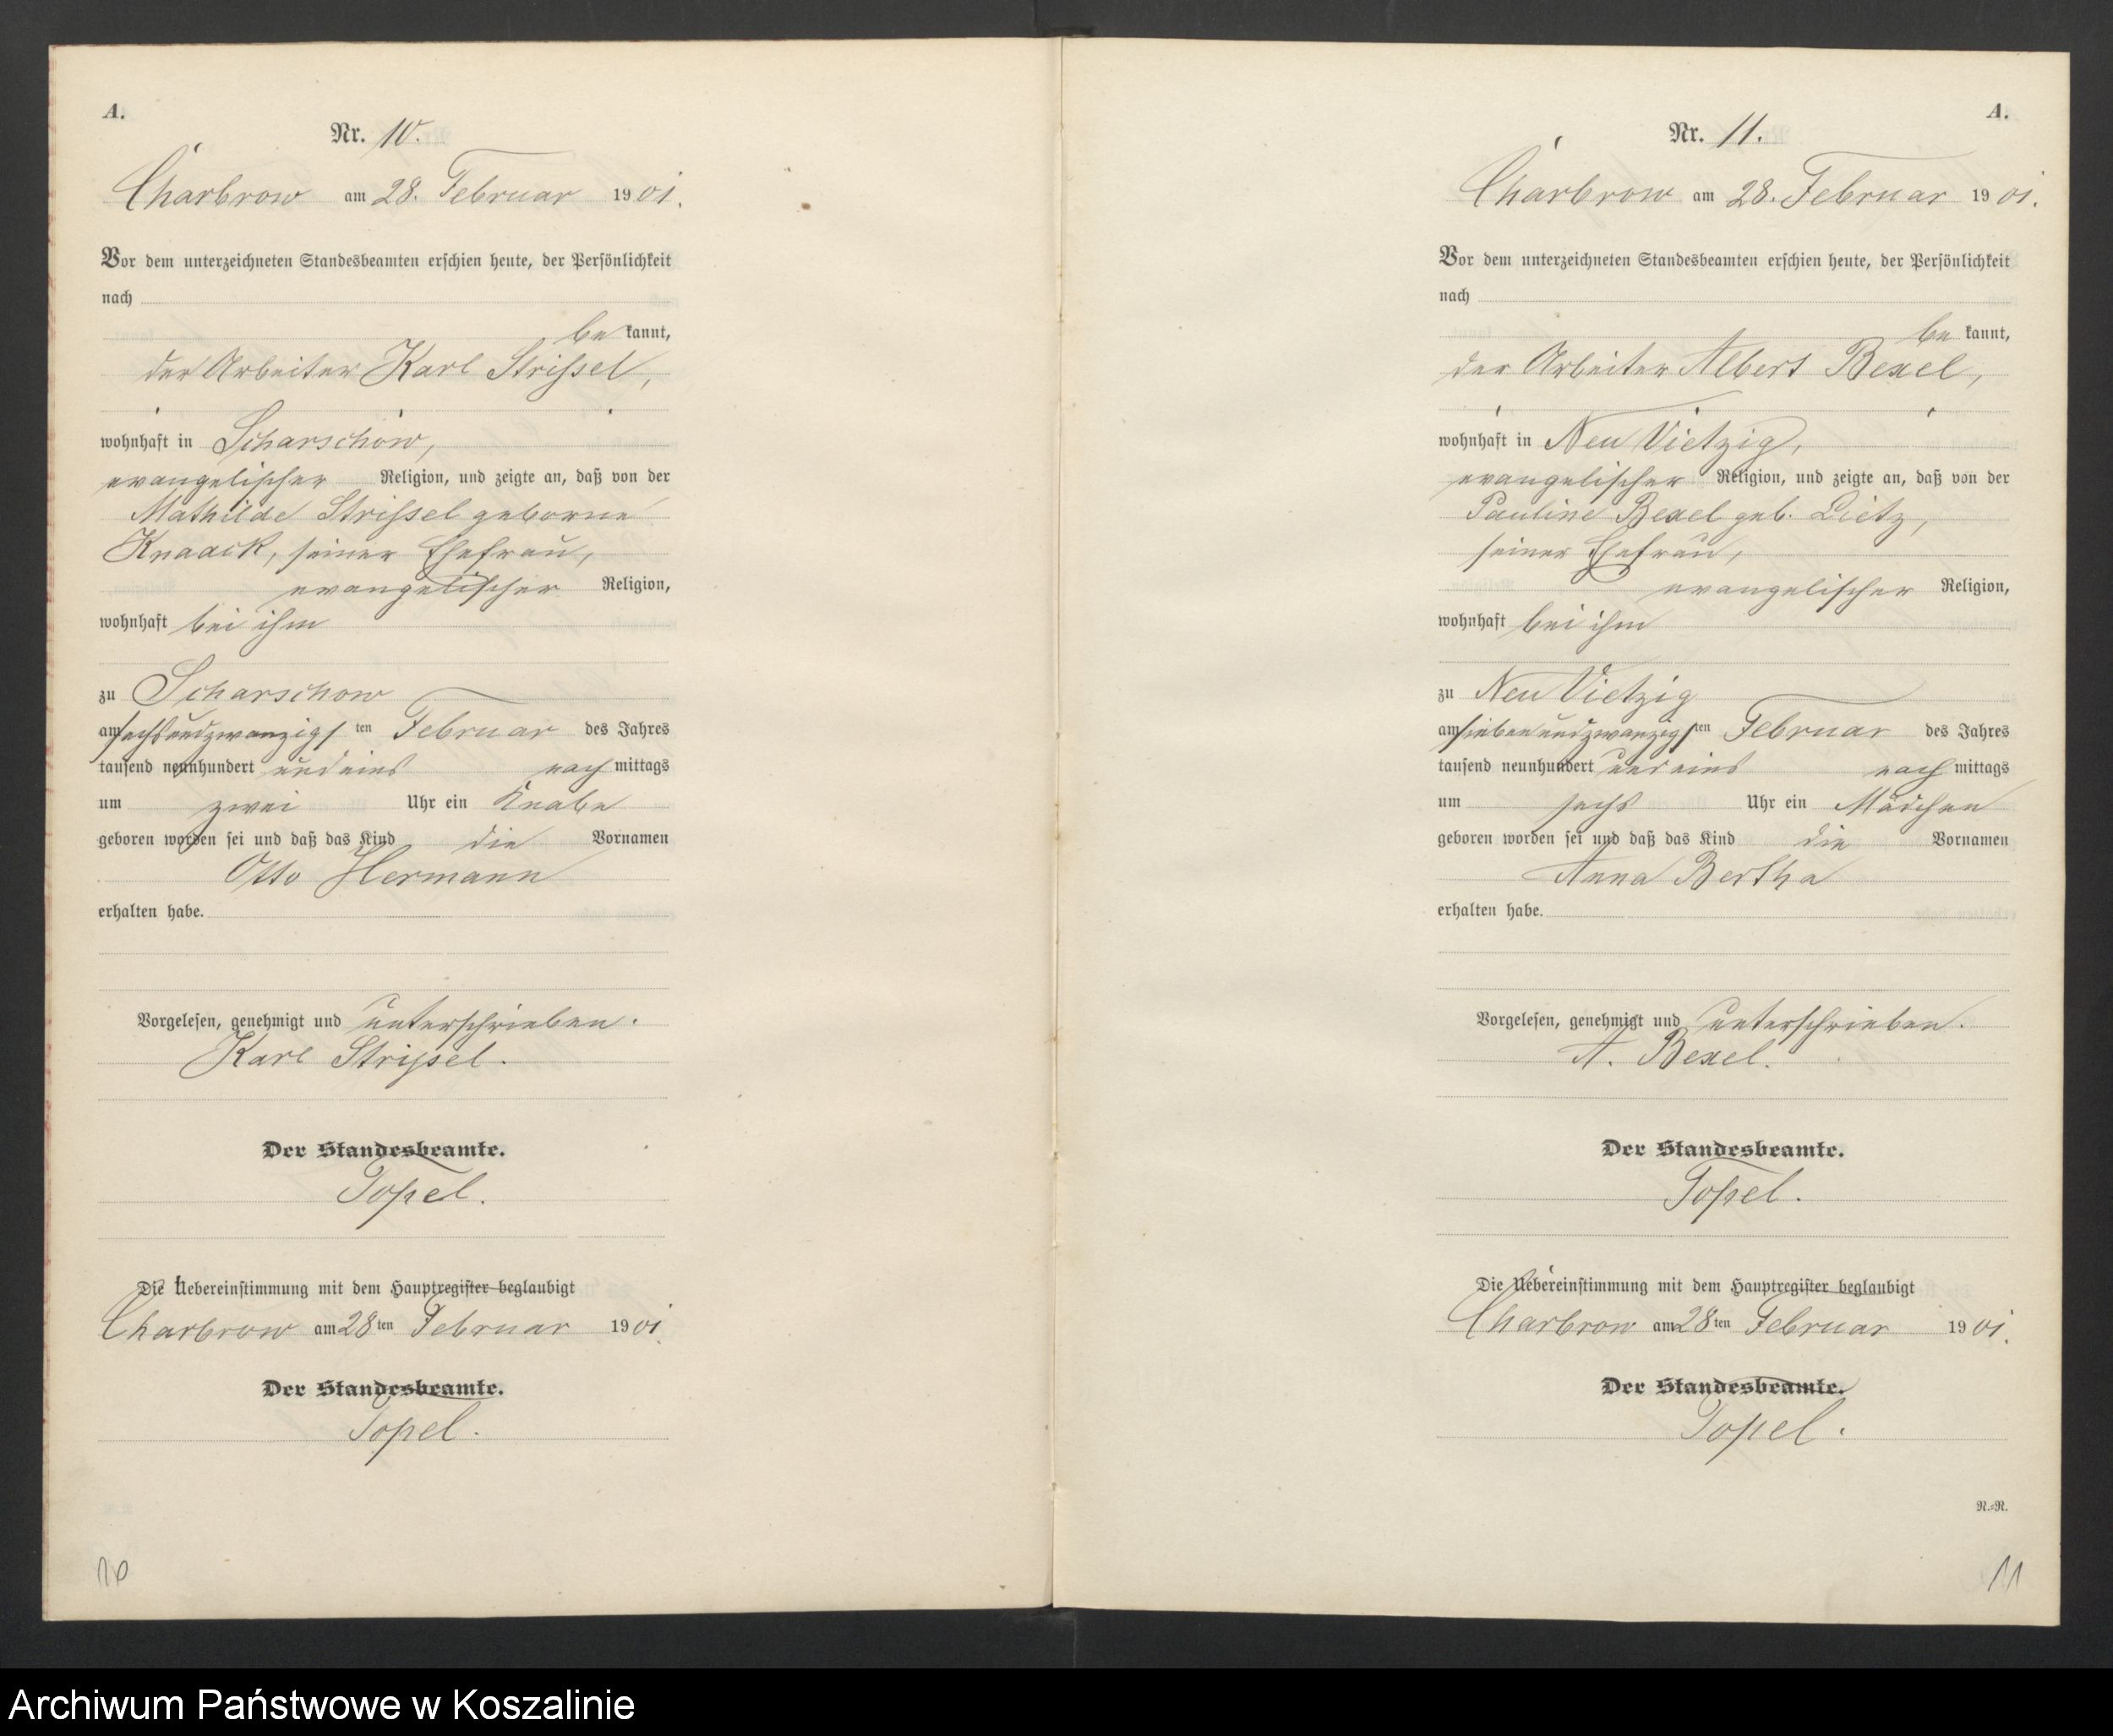 A.
Nr. 10.
Charbrow am 28. Februar 1901.
Vor dem unterzeichneten Standesbeamten erschien heute, der Persönlichkeit
nach
be kannt,
der Arbeiter Karl Strissel,
wohnhaft in Scharschow,
evangelischer Religion, und zeigte an, daß von der
Mathilde Strissel geborne
Knaack, seiner Ehefrau,
evangelischer Religion,
wohnhaft bei ihm
zu Scharschow
am sechsundzwanzigsten Februar des Jahres
tausend neunhundert und eins nach mittags
um zwei Uhr ein Knabe
geboren worden sei und daß das Kind die Vornamen
Otto Hermann
erhalten habe.
Vorgelesen, genehmigt und unterschrieben.
Karl Strissel.
Der Standesbeamte.
Topel.
Die Uebereinstimmung mit dem Hauptregister beglaubigt
Charbrow am 28ten Februar 1901.
Der Standesbeamte.
Topel.
10
A.
Nr. 11.
Charbrow am 28. Februar 1901.
Vor dem unterzeichneten Standesbeamten erschien heute, der Persönlichkeit
nach
be kannt,
der Arbeiter Albert Bexel,
wohnhaft in Neu Vietzig,
evangelischer Religion, und zeigte an, daß von der
Pauline Bexel geb. Lietz,
seiner Ehefrau,
evangelischer Religion,
wohnhaft bei ihm
zu Neu Vietzig
am siebenundzwanzigsten Februar des Jahres
tausend neunhundert und eins nach mittags
um sechs Uhr ein Mädchen
geboren worden sei und daß das Kind die Vornamen
Anna Bertha
erhalten habe.
Vorgelesen, genehmigt und unterschrieben.
A. Bexel.
Der Standesbeamte.
Topel.
Die Uebereinstimmung mit dem Hauptregister beglaubigt
Charbrow am 28ten Februar 1901.
Der Standesbeamte.
Topel.
R.-R.
11
Archiwum Państwowe w Koszalinie